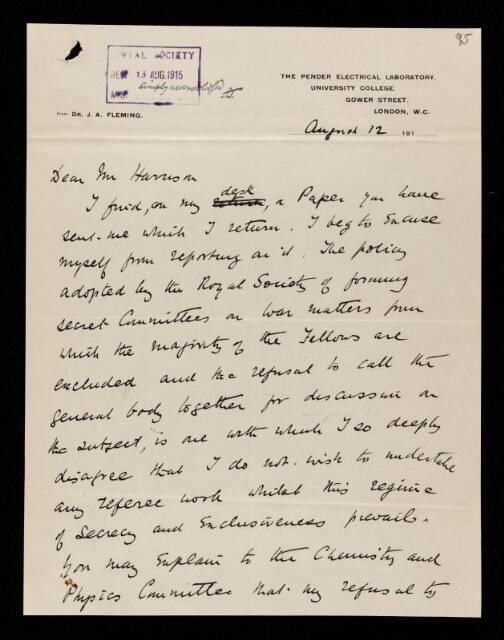 95
ROYAL SOCIETY
REC 13 AUG. 1915
ANSD
Simply acknowledged
THE PENDER ELECTRICAL LABORATORY.
UNIVERSITY COLLEGE.
GOWER STREET.
LONDON, W.C.
From DR. J. A. FLEMING.
August 12 191
Dear Mr Harrison
I find, on my desk, a Paper you have
sent me which I return. I beg to Excuse
myself from reporting on it. The policy
adopted by the Royal Society of forming
secret Committees on War matters from
which the majority of the Fellows are
excluded and the refusal to call the
general body together for discussion on
the subject, is one with which I so deeply
disagree that I do not wish to undertake
any referee work whilst this regime
of Secrecy and Exclusiveness prevails.
You may Explain to the Chemistry and
Physics Committee that my refusal to